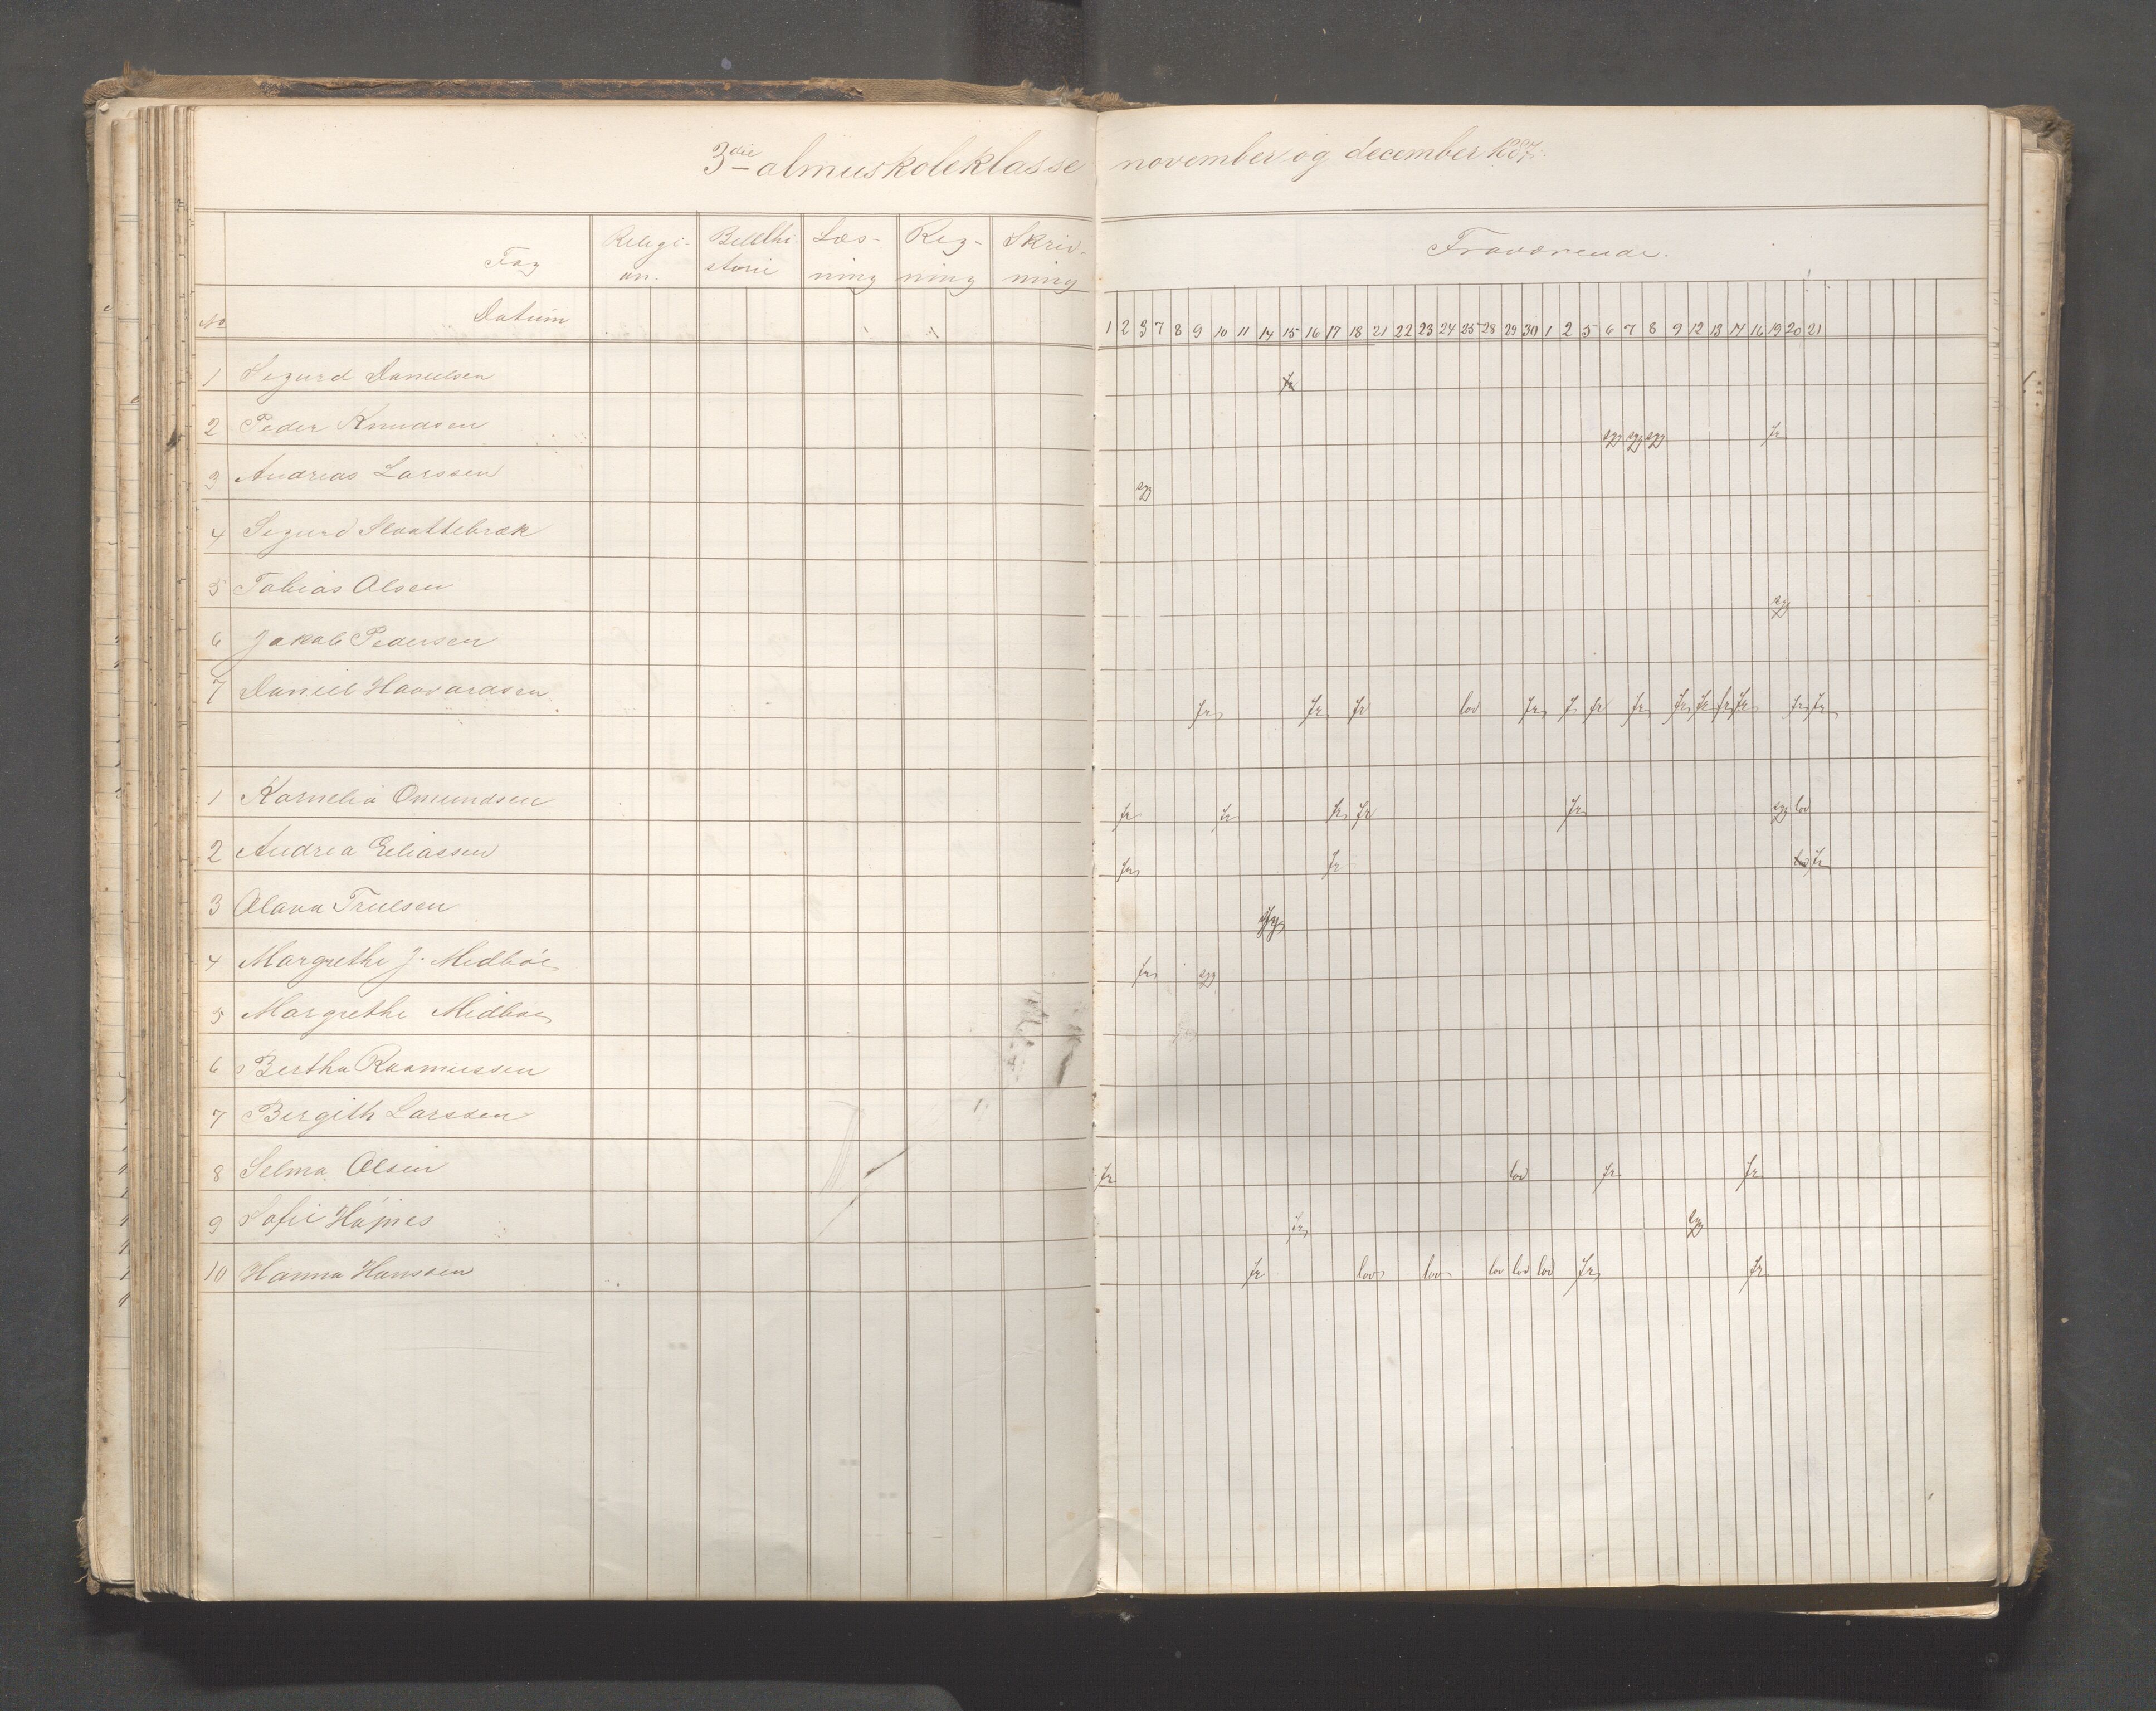 3die almuskoleklasse november og december 1887.
Fag Religi- Bibelhi- Læs- Reg- Skriv- Fraværende.
on. storie ning ning ning
No Datum 1 2 3 7 8 9 10 11 14 15 16 17 18 21 22 23 24 25 28 29 30 1 2 5 6 7 8 9 12 13 14 16 19 20 21
1 Sigurd Danielsen fr
2 Peder Knudsen syg syg syg fr
3 Andreas Larssen syg
4 Sigurd Slaattebræk
5 Tobias Olsen syg
6 Jakob Pedersen
7 Daniel Haavardsen fr fr fr lov fr fr fr fr fr fr fr fr fr fr
1 Kornelia Omundsen fr fr fr fr fr syg lov
2 Andrea Eeliassen fr fr lov fr
3 Olava Trulsen syg
4 Margrethe J. Medbøe fr syg
5 Margrethe Midbøe
6 Bertha Rasmussen
7 Bergith Larssen
8 Selma Olsen fr lov fr fr
9 Sofie Højnes fr syg
10 Hanna Hanssen fr lov lov lov lov lov fr fr